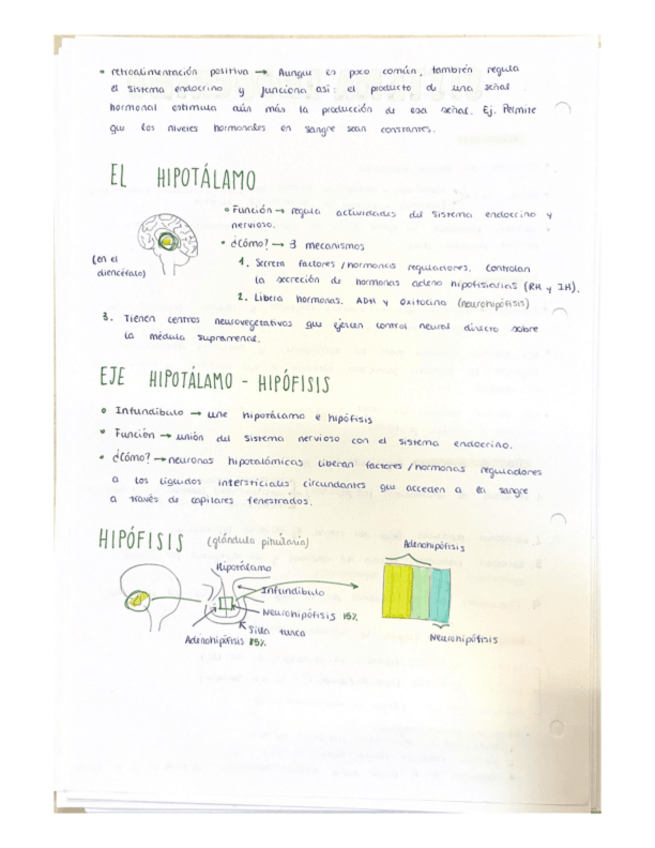 • retroalimentación positiva → Aunque es poco común, también regula
el sistema endocrino y funciona así: el producto de una señal
hormonal estimula aún más la producción de esa señal. Ej. Permite
que los niveles hormonales en sangre sean constantes.
EL HIPOTÁLAMO
• Función → regula actividades del sistema endocrino y
nervioso.
• ¿Cómo? → 3 mecanismos
(en el
diencéfalo)
1. Secreta factores / hormonas reguladores. Controlan
la secreción de hormonas adeno hipofisiarias (RH y IH).
2. Libera hormonas. ADH y Oxitocina (neurohipófisis)
3. Tienen centros neurovegetativos que ejercen control neural directo sobre
la médula suprarrenal.
EJE HIPOTÁLAMO - HIPÓFISIS
• Infundíbulo → une hipotálamo e hipófisis
• Función → unión del sistema nervioso con el sistema endocrino.
• ¿Cómo? → neuronas hipotalámicas liberan factores / hormonas reguladores
a los líquidos intersticiales circundantes que acceden a la sangre
a través de capilares fenestrados.
HIPÓFISIS (glándula pituitaria)
Adenohipófisis
Hipotálamo
Infundíbulo
Neurohipófisis 15%
Silla turca
Adenohipófisis 85%
Neurohipófisis